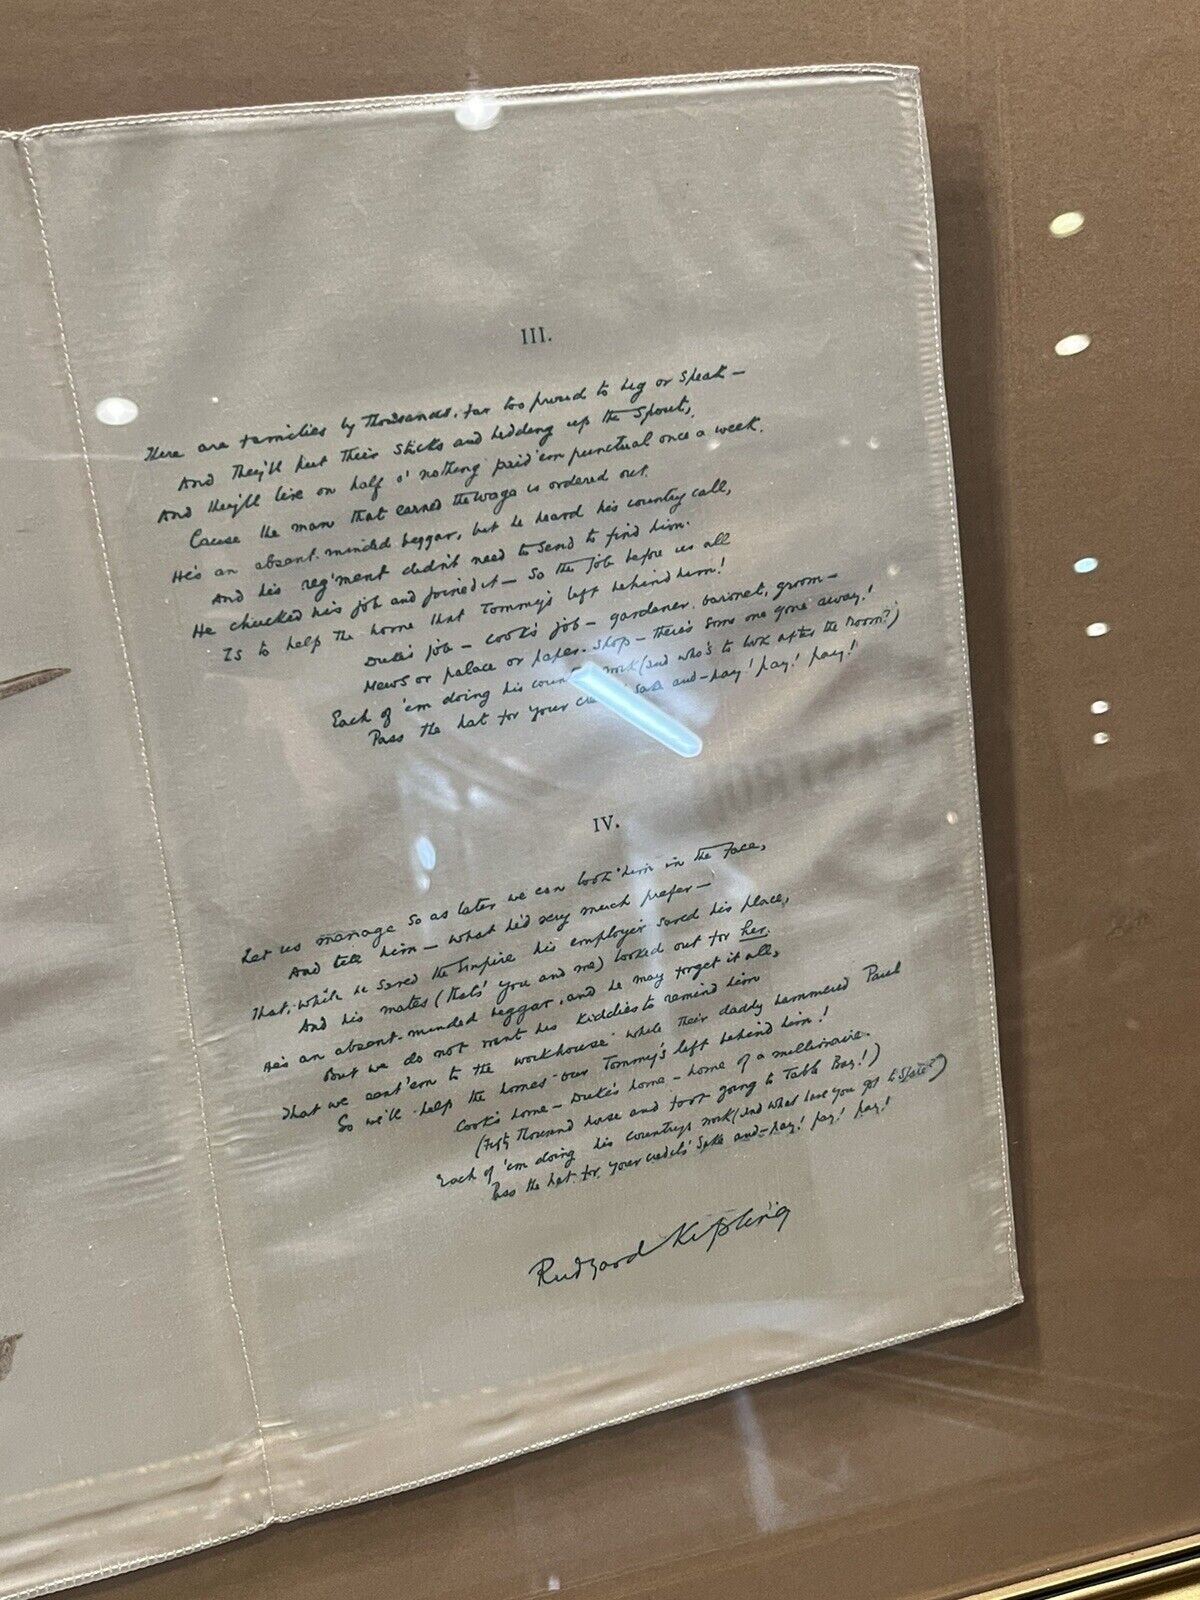 III.
There are families by thousands, far too proud to beg or speak —
And they'll put their sticks and bedding up the spout,
And they'll live on half o' nothing paid 'em punctual once a week.
Cause the man that earned the wage is ordered out.
He's an absent-minded beggar, but he heard his country call,
And his reg'ment didn't need to send to find him.
He chucked his job and joined it — So the job before us all
Is to help the home that Tommy's left behind him!
Duke's job — Cook's job — gardener, baronet, groom —
Mews or palace or paper-shop — there's some one gone away!
Each of 'em doing his work (and who's to look after the room?)
Pass the hat for your sake and — pay! pay! pay!
IV.
Let us manage so as later we can look him in the face,
And tell him — what he'd very much prefer —
That, while he saved the Empire his employer saved his place,
And his mates (that's you and me) looked out for her.
He's an absent-minded beggar, and he may forget it all,
But we do not want his kiddies to remind him
That we sent 'em to the workhouse while their daddy hammered Paul
So we'll help the homes our Tommy's left behind him!
Cook's home — Duke's home — home of a millionaire.
(Fifty thousand horse and foot going to Table Bay!)
Each of 'em doing his country's work (and what have you got to spare?)
Pass the hat for your credit's sake and — pay! pay! pay!
Rudyard Kipling